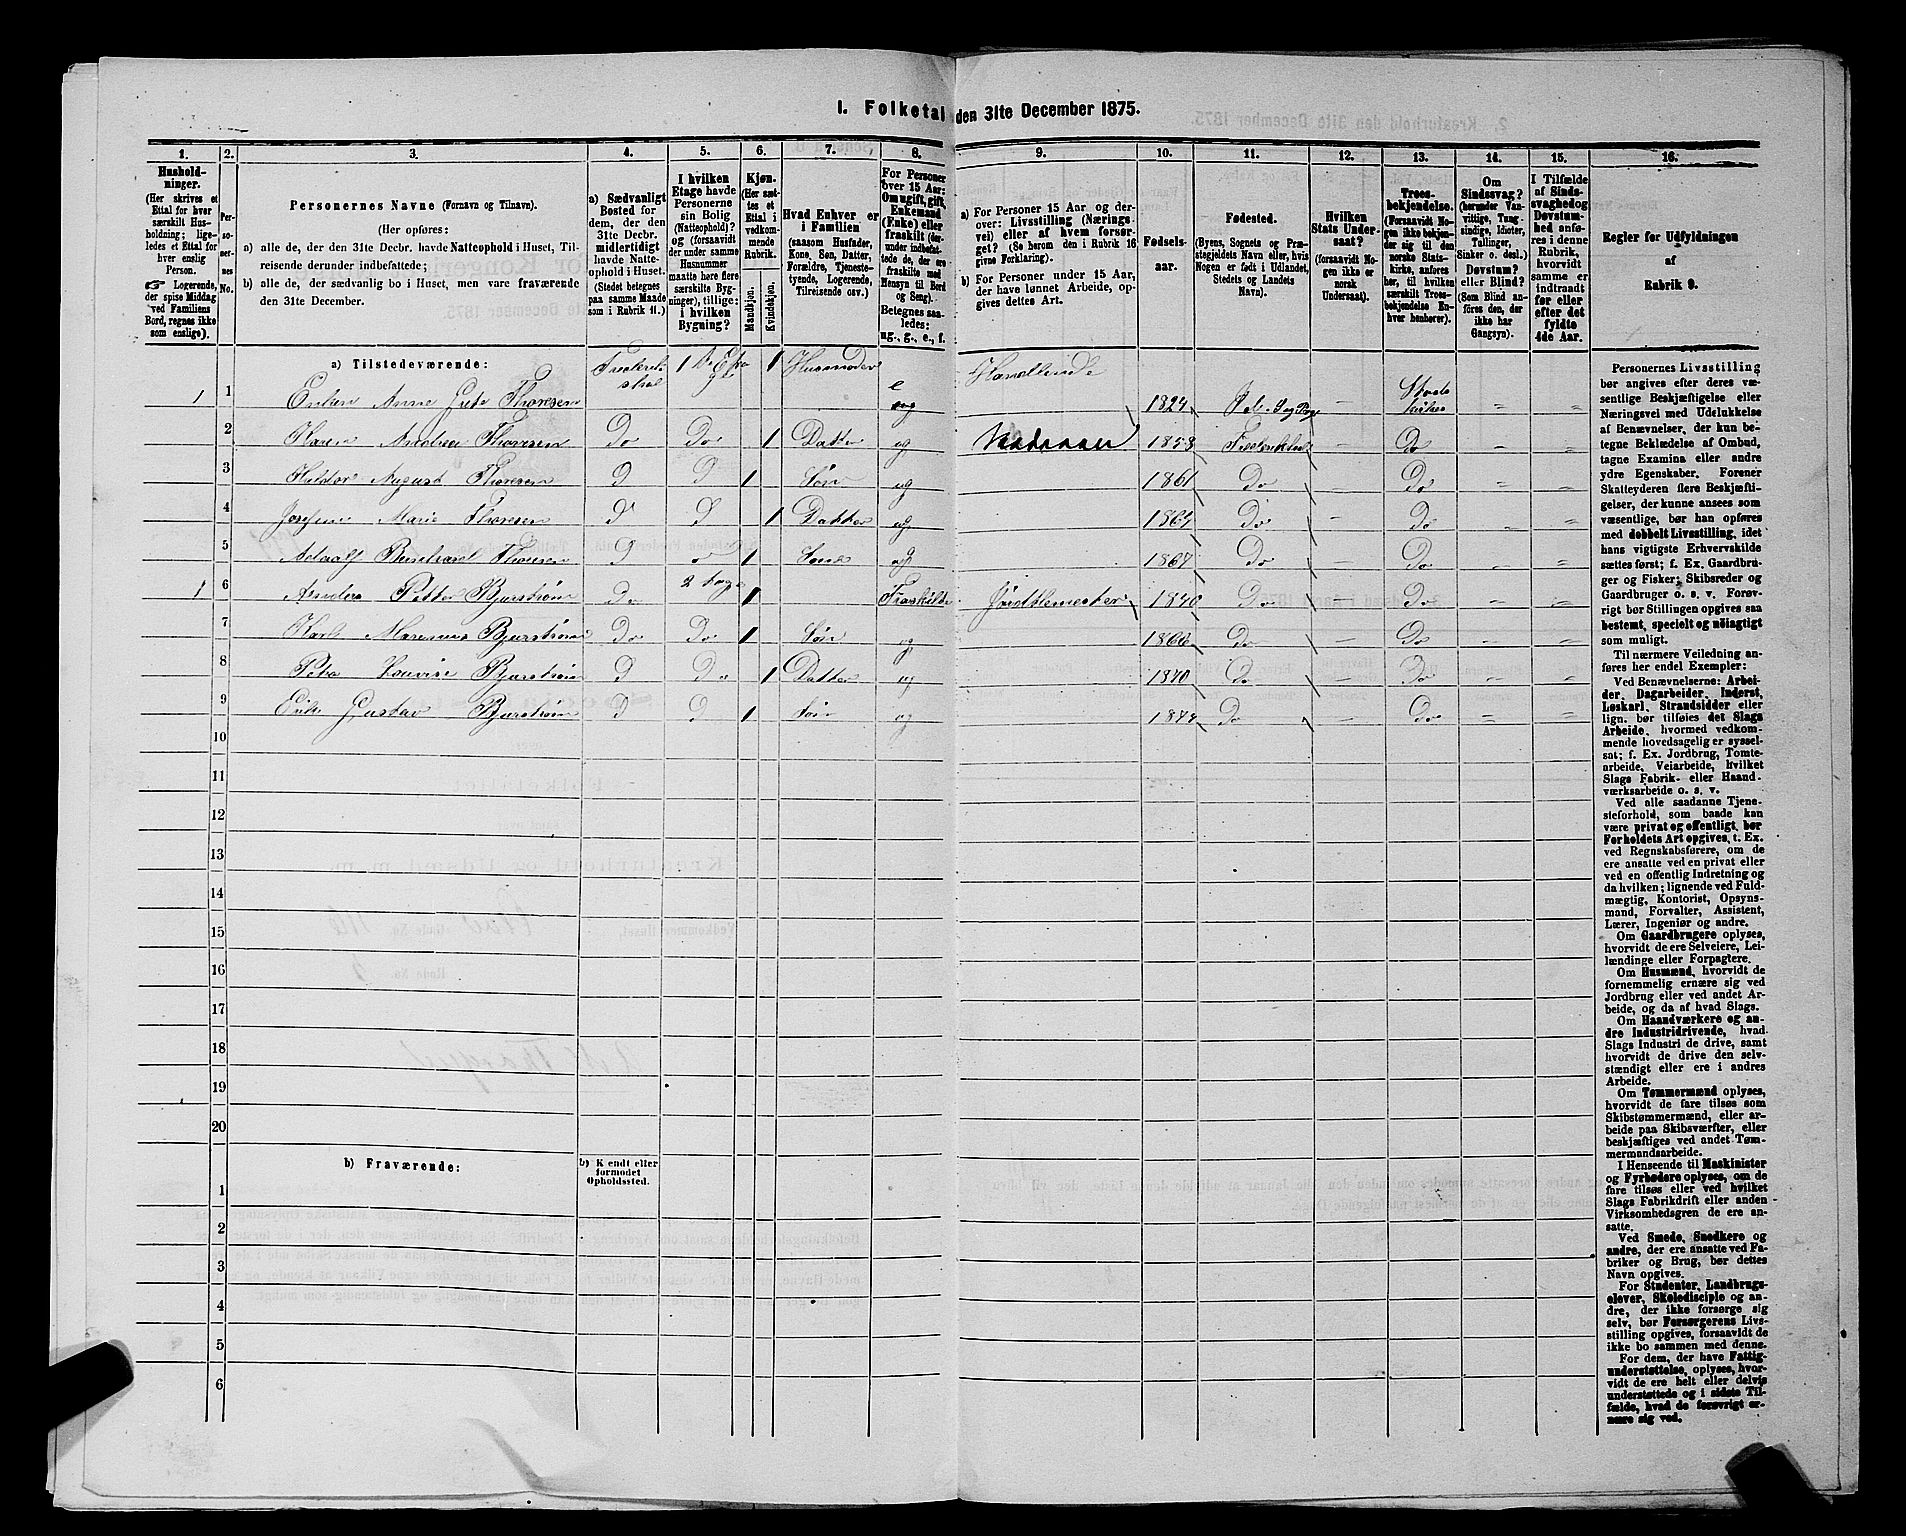 1. Folketal den 31te December 1875.
1. 2. 3. 4. 5. 6. 7. 8. 9. 10. 11. 12. 13. 14. 15. 16.
Hushold-
ninger.
(Her skrives et
Ettal for hver
særskilt Hus-
holdning; lige-
ledes et Ettal for
hver enslig
Person.
☞ Logerende,
der spise Middag
ved Familiens
Bord, regnes ikke
som enslige).
Per-
so-
ner-
nes
No.
Personernes Navne (Fornavn og Tilnavn).
(Her opføres:
a) alle de, der den 31te Decbr. havde Natteophold i Huset, Til-
reisende derunder indbefattede;
b) alle de, der sædvanlig bo i Huset, men vare fraværende
den 31te December.
a) Sædvanligt
Bosted for
dem, der den
31te Decbr.
midlertidigt
havde Natte-
ophold i Huset.
(Stedet betegnes
paa samme Maade
som i Rubrik 11.)
I hvilken
Etage havde
Personerne
sin Bolig
(Natteophold)?
og (forsaavidt
der under samme
Husnummer
maatte høre flere
særskilte Byg-
ninger), tillige:
i hvilken
Bygning?
Kjøn.
(Her sæt-
tes et
Ettal i
vedkom-
mende
Rubrik.
Mandkjøn.
Kvindekjøn.
Hvad Enhver er
i Familien
(saasom Husfader,
Kone, Søn, Datter,
Forældre, Tjeneste-
tyende, Logerende,
Tilreisende osv.)
For Personer
over 15 Aar:
Om ugift, gift,
Enkemand
(Enke) eller
fraskilt (der-
under indbefat-
tede de, der ere
fraskilte med
Hensyn til Bord
og Seng).
Betegnes saa-
ledes:
ug., g., e., f.
a) For Personer 15 Aar og der-
over: Livsstilling (Nærings-
vei) eller af hvem forsør-
get? (Se herom den i Rubrik 16
givne Forklaring).
b) For Personer under 15 Aar,
der have lønnet Arbeide, op-
gives dettes Art.
Fødsels-
aar.
Fødested.
(Byens, Sognets og Præ-
stegjeldets Navn eller, hvis
Nogen er født i Udlandet,
Stedets og Landets
Navn).
Hvilken
Stats Under-
saat?
(forsaavidt No-
gen ikke er
norsk
Undersaat).
Troes-
bekjendelse.
(Forsaavidt No-
gen ikke bekjen-
der sig til den
norske Stats-
kirke, anføres
her, til hvilket
særskilt Troes-
bekjendelse En-
hver henhører).
Om
Sindssvag?
(herunder Van-
vittige, Tung-
sindige, Idioter,
Tullinger,
Sinker o. desl.)
Døvstum?
eller Blind?
(Som Blind an-
føres den, der
ikke har
Gangsyn).
I Tilfælde
af Sinds-
svaghed og
Døvstum-
hed anfø-
res i denne
Rubrik,
hvorvidt
samme er
indtraadt
før eller
efter det
fyldte
4de Aar.
Regler for Udfyldningen
af
Rubrik 9.
a) Tilstedeværende:
1 1 Enken Anne Grete Thoresen 1 1 Husmoder e Handlende 1824 Stads Kirken
2 Karen Andrea Thoresen Do Do 1 Datter ug 1853 Do
3 August Thoresen D D 1 Søn ug 1861 Do Do
4 Josefine Marie Thoresen D D 1 Datter ug Do Do
5 Thoresen D 1 ug 1867 Do Do
1 6 Anders Petter Bjurstrøm Do 2 1 Fraskildt 1840 Do Do
7 Karl Bjurstrøm Do Do 1 Søn ug 1866 Do Do
8 Petra Lovise Bjurstrøm D Do 1 Datter ug 1870 Do Do
9 Erik Gustav Bjurstrøm D D 1 Søn ug Do Do
10
11
12
13
14
15
16
17
18
19
20
b) Fraværende:
b) Kjendt eller
formodet
Opholdssted.
1
2
3
4
5
6
Personernes Livsstilling
bør angives efter deres væ-
sentlige Beskjæftigelse eller
Næringsvei med Udelukkelse
af Benævnelser, der kun be-
tegne Beklædelse af Ombud,
tagne Examina eller andre
ydre Egenskaber. Forener
Skatteyderen flere Beskjæfti-
gelser, der kunne ansees som
væsentlige, bør han opføres
med dobbelt Livsstilling, idet
hans vigtigste Erhvervskilde
sættes først; f. Ex. Gaardbru-
ger og Fisker; Skibsreder og
Gaardbruger o. s. v. Forøv-
rigt bør Stillingen opgives saa
bestemt, specielt og nøiagtigt
som muligt.
Til nærmere Veiledning an-
føres her endel Exempler:
Ved Benævnelserne: Arbei-
der, Dagarbeider, Inderst,
Løskarl, Strandsidder eller
lign. bør tilføies det Slags
Arbeide, hvormed vedkom-
mende hovedsagelig er syssel-
sat; f. Ex. Jordbrug, Tomte-
arbeide, Veiarbeide, hvilket
Slags Fabrik- eller Haand-
værksarbeide o. s. v.
Ved alle saadanne Tjene-
steforhold, som baade kan
være privat og offentligt, bør
Forholdets Art opgives, t. Ex.
ved Regnskabsførere, om de
ere ansatte ved en privat eller
ved en offentlig Indretning og
da hvilken; lignende ved Fuld-
mægtig, Kontorist, Opsyns-
mand, Forvalter, Assistent,
Lærer, Ingeniør og andre.
Om Gaardbrugere oplyses,
hvorvidt de ere Selveiere, Lei-
lændinge eller Forpagtere.
Om Husmænd, hvorvidt de
fornemmelig ernære sig ved
Jordbrug eller ved andet Ar-
beide, og da af hvad Slags.
Om Haandværkere og an-
dre Industridrivende, hvad
Slags Industri de drive, samt
hvorvidt de drive den selv-
stændigt eller ere i andres
Arbeide.
Om Tømmermænd oplyses,
hvorvidt de fare tilsøs som
Skibstømmermænd, eller ar-
beide paa Skibsværfter, eller
beskjæftiges ved andet Tøm-
mermandsarbeide.
I Henseende til Maskinister
og Fyrbødere oplyses, om de
fare tilsøs eller ved hvilket
Slags Fabrikdrift eller anden
Virksomhedsgren de ere an-
satte.
Ved Smede, Snedkere og
andre, der ere ansatte ved Fa-
briker og Brug, bør dettes
Navn opgives.
For Studenter, Landbrugs-
elever, Skoledisciple og an-
dre, der ikke forsørge sig
selv, bør Forsørgerens Livs-
stilling opgives, forsaavidt de
ikke bo sammen med denne.
For dem, der have Fattig-
understøttelse, oplyses, hvor-
vidt de ere helt eller delvis
understøttede og i sidste Til-
fælde, hvad de forøvrigt er-
nære sig ved.